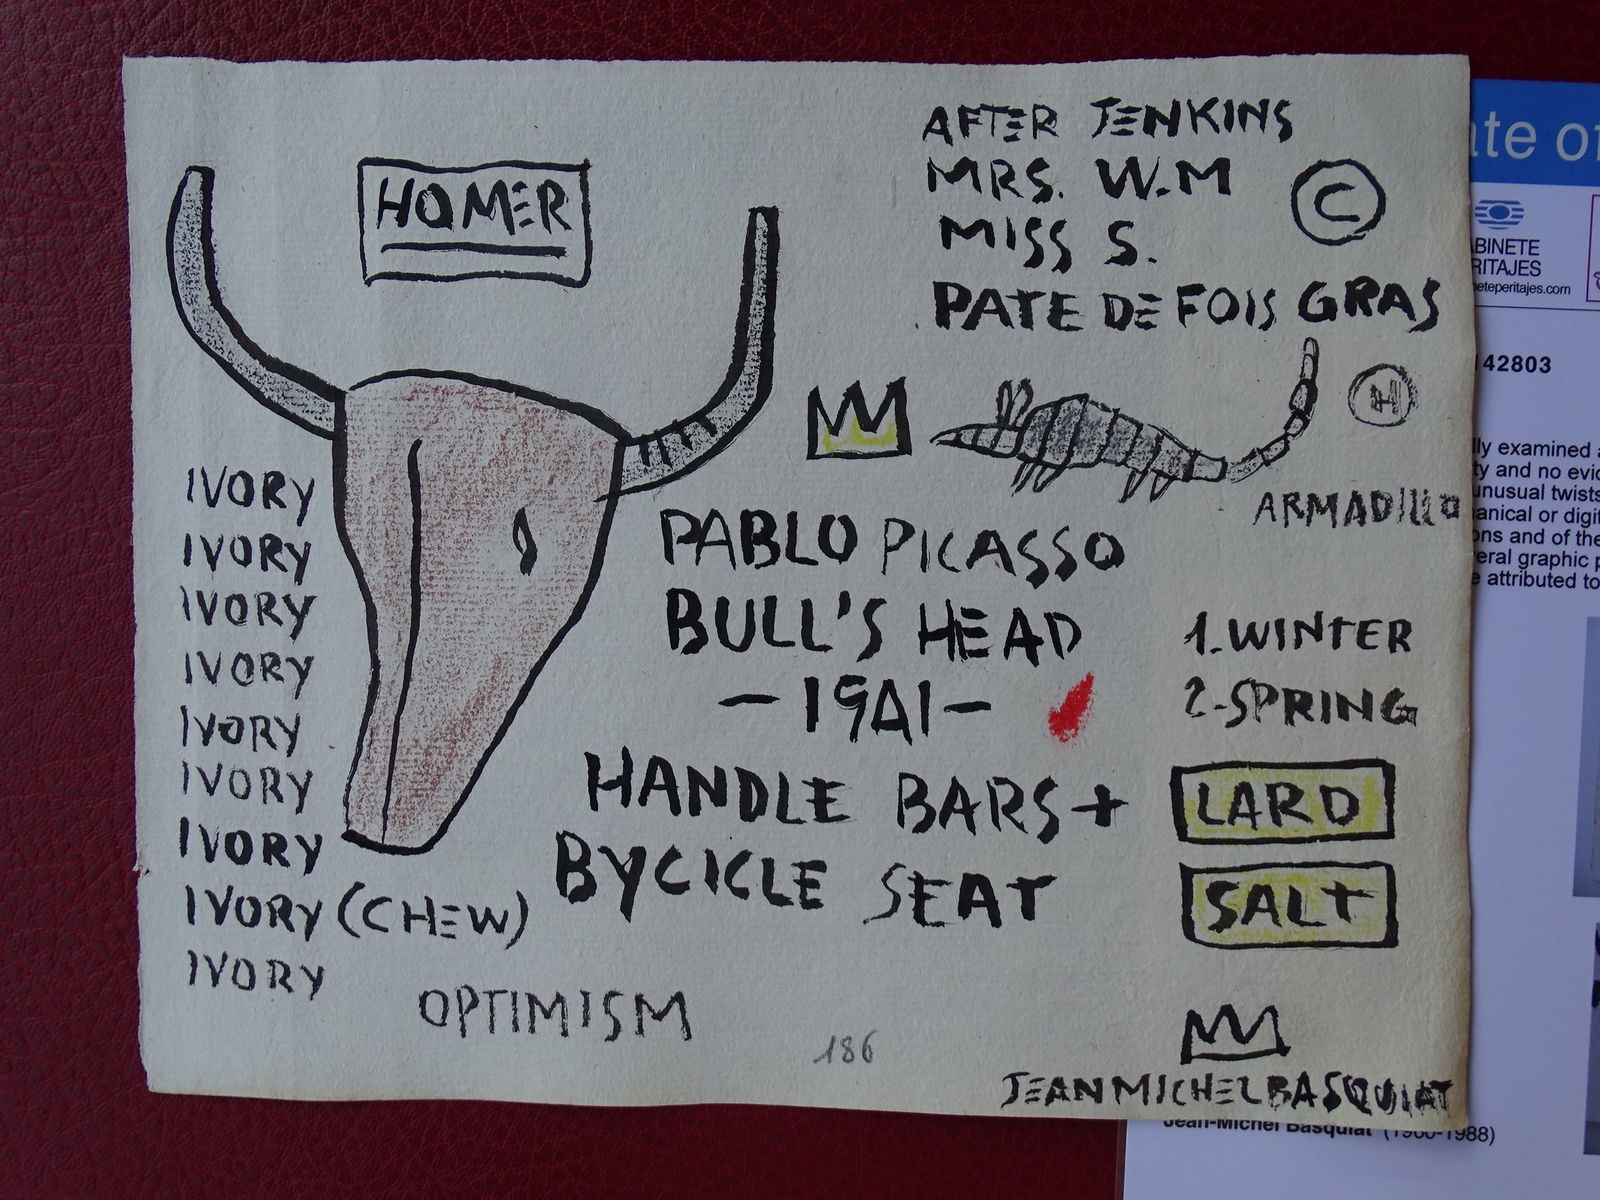 HOMER
AFTER JENKINS
MRS. W.M
MISS S.
©
PATE DE FOIS GRAS
H
ARMADILLO
IVORY
IVORY
IVORY
IVORY
IVORY
IVORY
IVORY
IVORY (CHEW)
IVORY
PABLO PICASSO
BULL'S HEAD
-1941-
HANDLE BARS +
BYCICLE SEAT
1.WINTER
2-SPRING
LARD
SALT
OPTIMISM
186
JEAN MICHEL BASQUIAT
ate of
ABINETE
RITAJES
neteperitajes.com
142803
lly examined
ty and no evi
unusual twists
anical or digit
ons and of the
eral graphic p
e attributed to
Jean-Michel Basquiat (1960-1988)